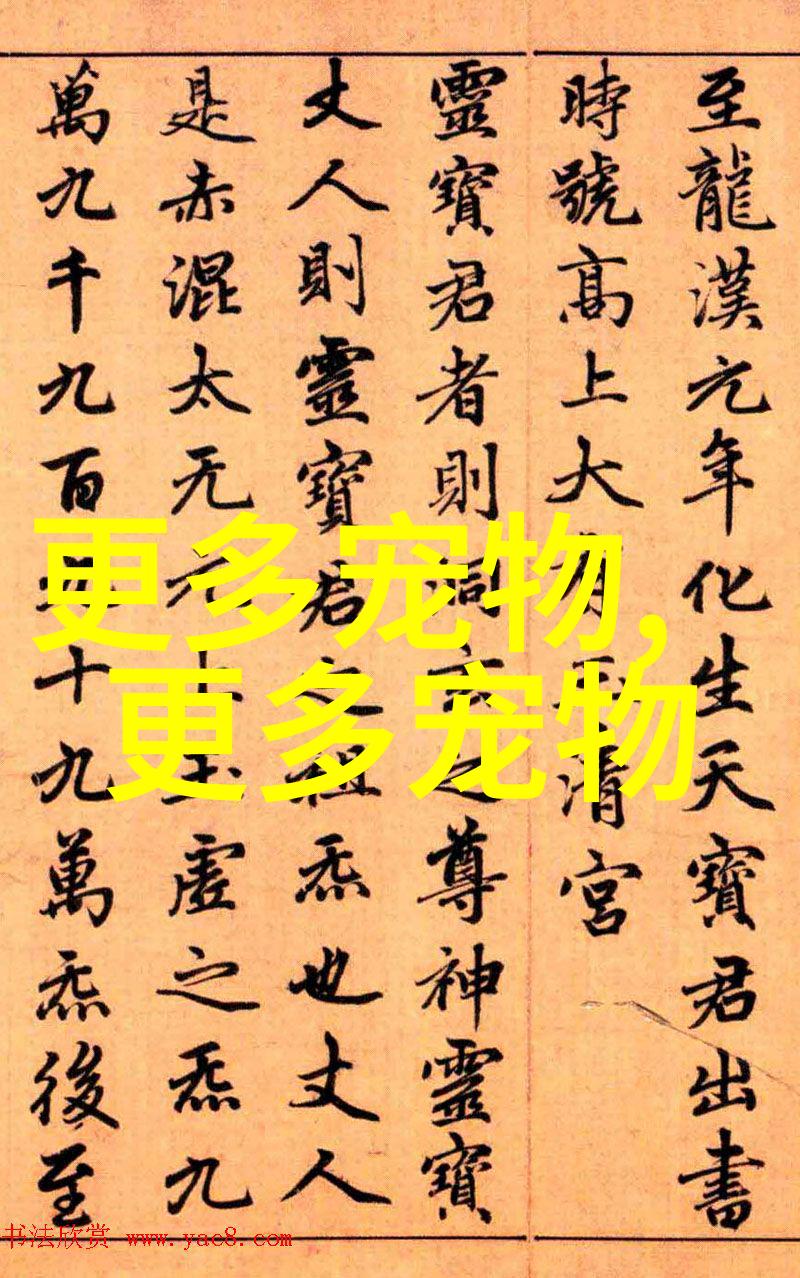 至龍漢元年化生天寶君出書
時號髙上大有玉清宮
靈寶君者則洞玄之尊神靈寶
丈人則靈寶君之祖炁也丈人
是赤混太无元上玉虛之炁九
萬九千九百九十九萬炁後至
更多宠物,
更多宠物
书法欣赏 www.yac8.com